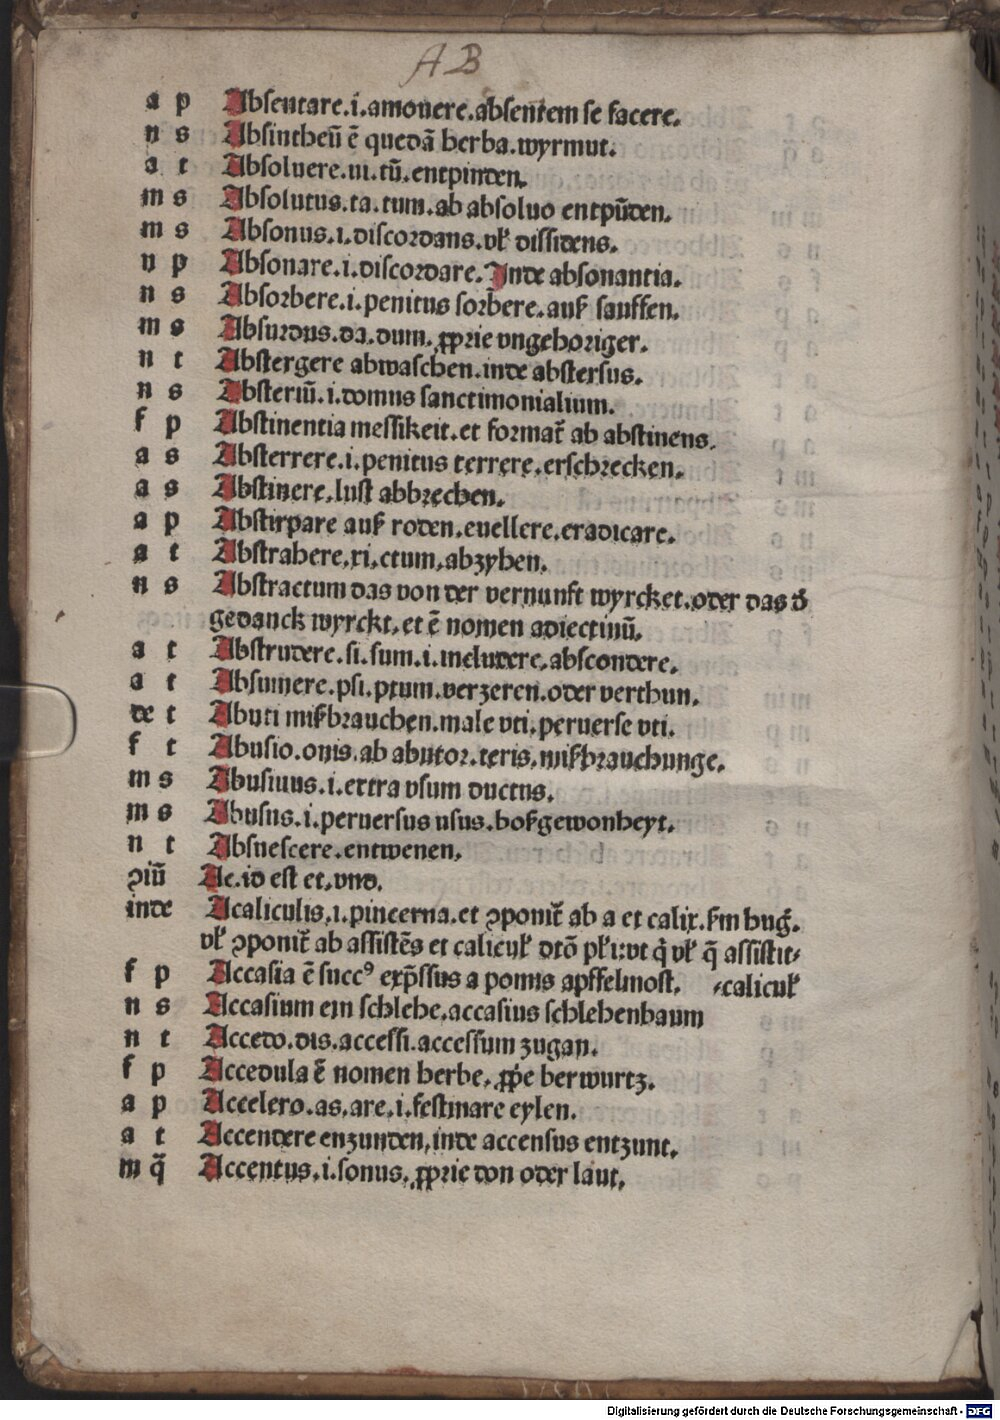 AB
a p Absentare.i.amouere.absentem se facere.
n s Absintheū ē quedā herba.wyrmut.
a t Absoluere.ui.tū.entpinden.
m s Absolutus.ta.tum.ab absoluo entpūden.
m s Absonus.i.discordans.vꝉ dissidens.
n p Absonare.i.discordare.Inde absonantia.
n s Absorbere.i.penitus sorbere.auß sauffen.
m s Absurdus.da.dum.ꝓprie vngehoriger.
n t Abstergere abwaschen.inde abstersus.
n s Absteriū.i.domus sanctimonialium.
f p Abstinentia messikeit.et format̄ ab abstinens.
a s Absterrere.i.penitus terrere.erschrecken.
a s Abstinere.lust abbrechen.
a p Abstirpare auß roden.euellere.eradicare.
a t Abstrahere.xi.ctum.abzyhen.
n s Abstractum das von der vernunft wyrcket.oder das d̕
gedanck wyrckt.et ē nomen adiectiuū.
a t Abstrudere.si.sum.i.includere.abscondere.
a t Absumere.psi.ptum.verzeren.oder verthun.
de t Abuti mißbrauchen.male vti.peruerse vti.
f t Abusio.onis.ab abutor.teris.mißbrauchunge.
m s Abusiuus.i.extra vsum ductus.
m s Abusus.i.peruersus usus.boßgewonheyt.
n t Absuescere.entwenen.
ꝯiū Ac.id est et.vnd.
inde Acaliculis.i.pincerna.et ꝯponit̄ ab a et calix.ẜm hug̕.
vꝉ ꝯponit̄ ab assistēs et calicuꝉ dtō pꝉi:vt q̇ vꝉ q̄ assistit⸗
f p Accasia ē succꝰ exp̄ssus a pomis apffelmost. ⸗calicuꝉ
n s Accasium ein schlehe.accasius schlehenbaum
n t Accedo.dis.accessi.accessum zugan.
f p Accedula ē nomen herbe.ꝓp̕e berwurtz.
a p Accelero.as.are.i.festinare eylen.
a t Accendere enzunden.inde accensus entzunt.
m q̄ Accentus.i.sonus.ꝓprie don oder laut.
Digitalisierung gefördert durch die Deutsche Forschungsgemeinschaft - DFG